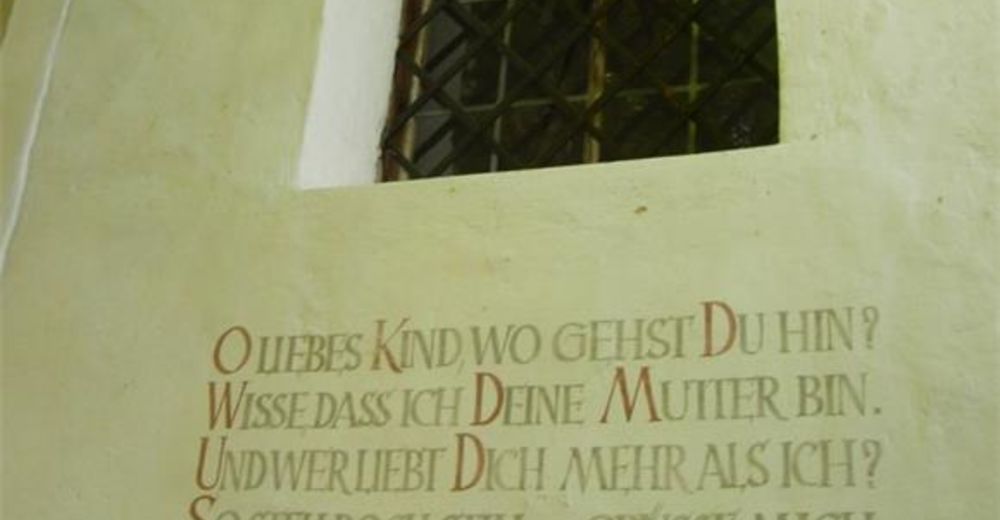 O LIEBES KIND, WO GEHST DU HIN?
WISSE DASS ICH DEINE MUTTER BIN.
UND WER LIEBT DICH MEHR ALS ICH?